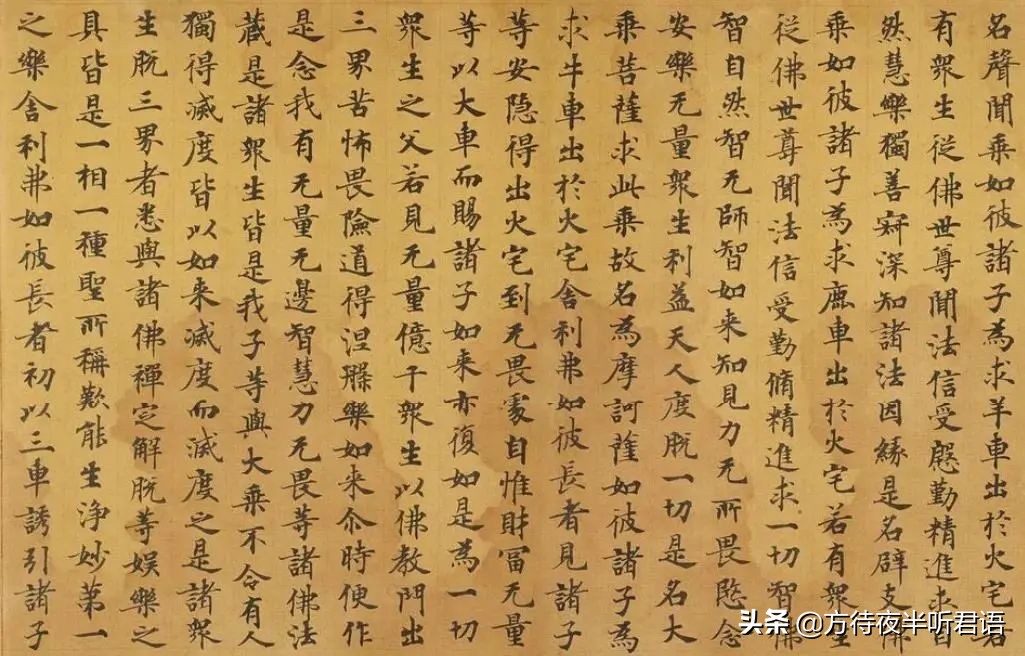 名聲聞乘如彼諸子為求羊車出於火宅若
有衆生従佛世尊聞法信受慇勤精進求自
然慧樂獨善寂深知諸法因緣是名辟支佛
乘如彼諸子為求鹿車出於火宅若有衆生
従佛世尊聞法信受勤脩精進求一切智佛
智自然智无師智如来知見力无所畏愍念
安樂无量衆生利益天人度脱一切是名大
乘菩薩求此乘故名為摩訶薩如彼諸子為
求牛車出於火宅舍利弗如彼長者見諸子
等安隐得出火宅到无畏處自惟財冨无量
等以大車而賜諸子如来亦復如是為一切
衆生之父若見无量億千衆生以佛教門出
三界苦怖畏險道得涅槃樂如来尒時便作
是念我有无量无邊智慧力无畏等諸佛法
藏是諸衆生皆是我子等與大乘不令有人
獨得滅度皆以如来滅度而滅度之是諸衆
生脱三界者悉與諸佛禪定解脱等娯樂之
具皆是一相一種聖所稱歎能生浄妙第一
之樂舍利弗如彼長者初以三車誘引諸子
头条 @方待夜半听君语